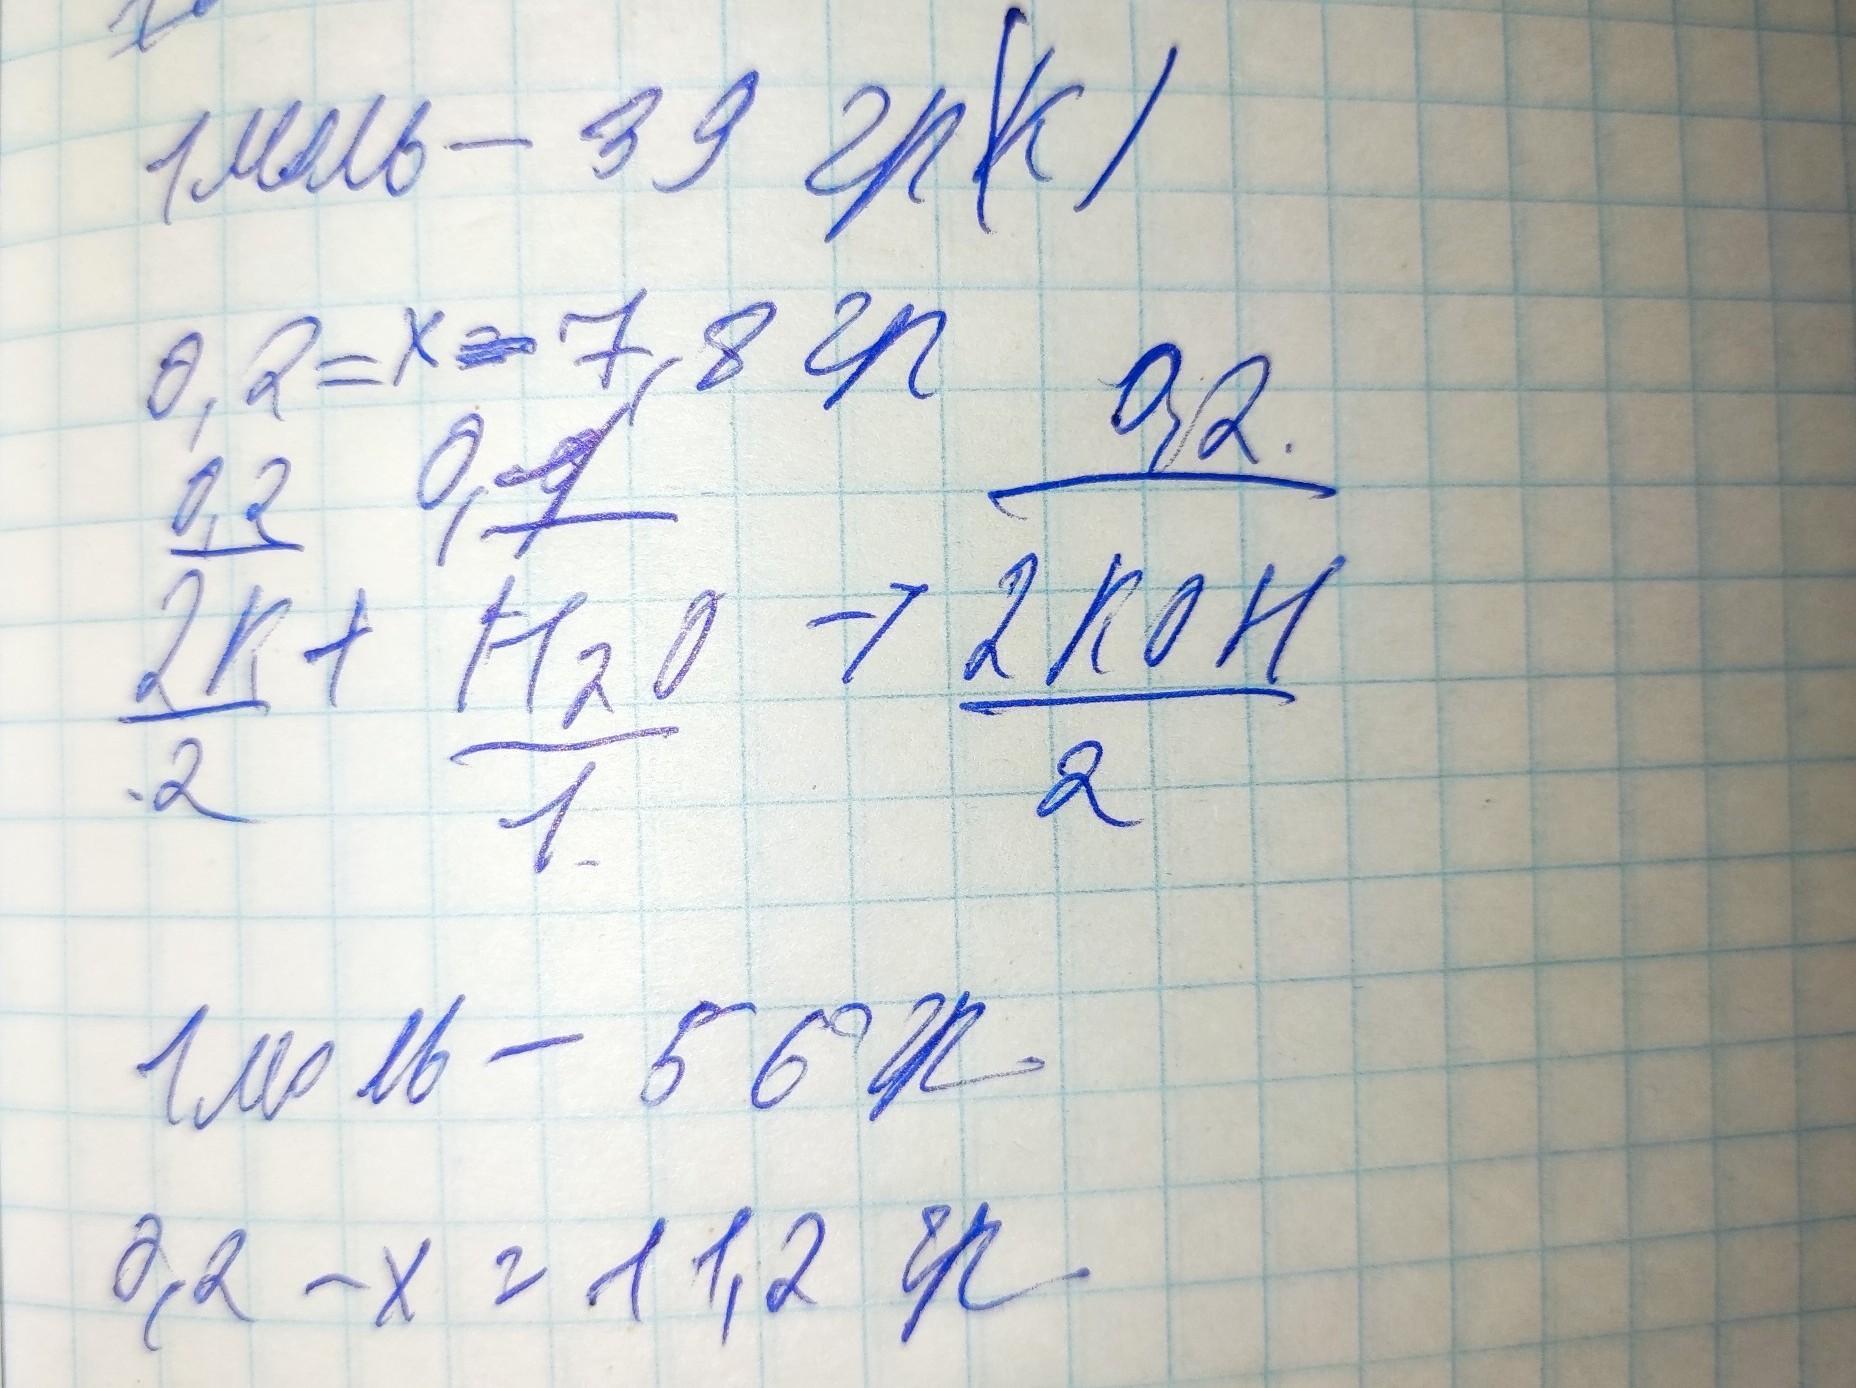 1 моль - 39 гр (K)
0,2 = x = 7,8 гр
0,2 0,1 0,2.
2K + H2O → 2KOH
2 1 2
1 моль - 56 гр
0,2 - x = 11,2 гр